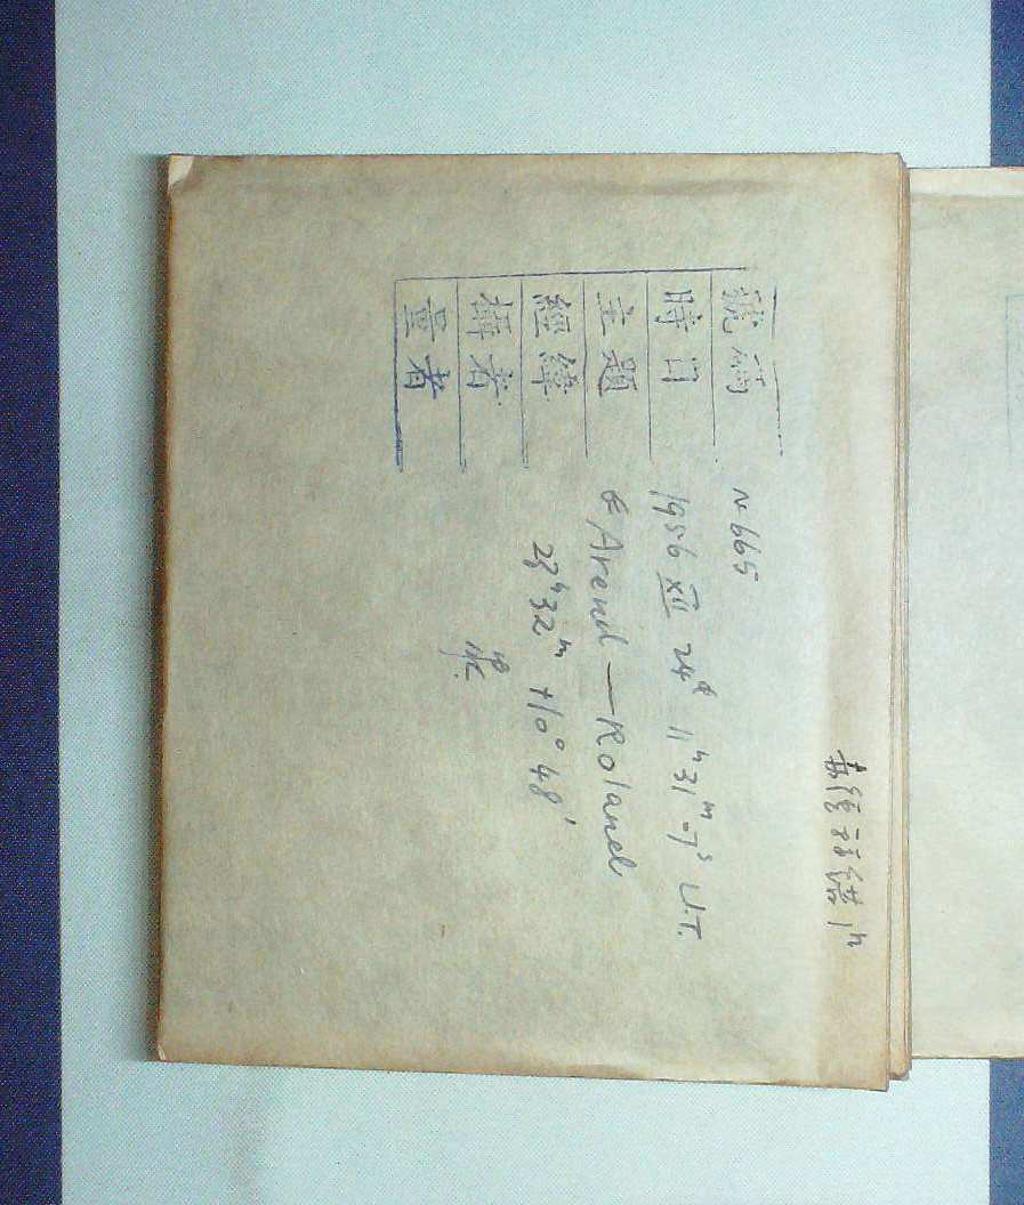 赤經註錯1ʰ
號碼 N 665
時日 1956 XII 24ᵈ 11ʰ31ᵐ-7ˢ U.T.
主題 Arend—Roland
經緯 23ʰ32ᵐ +10° 48'
攝者
量者